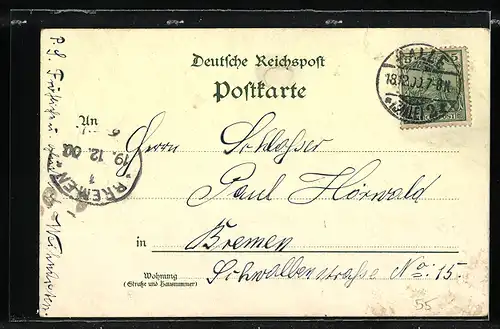 Deutsche Reichspost
Postkarte
HALLE
18.12.00. 7-8 N.
*(SAALE) 2
5
REICHSPOST
An
Herrn Schlosser
Paul Hörwald
in Bremen
Wohnung
(Straße und Hausnummer)
Schwalbenstrasse No: 15.
BREMEN
1
19.12.00
55
P.S. Fröhliche
Weihnachten